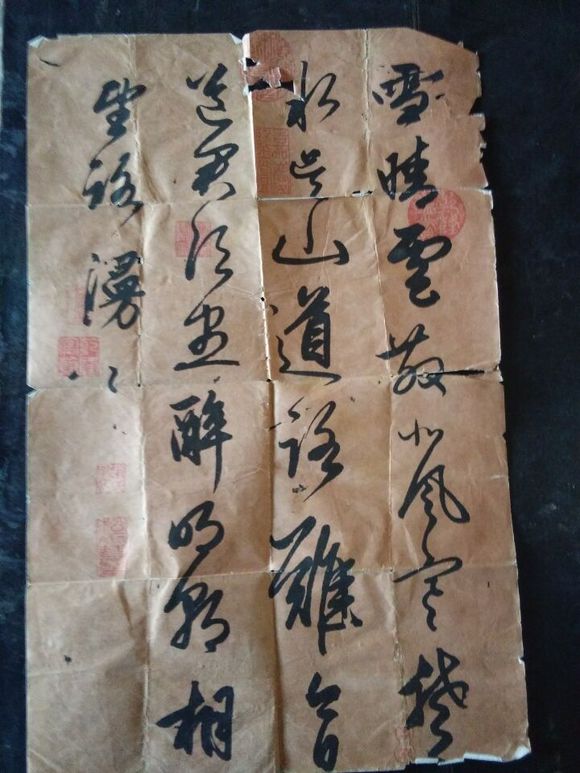 雪晴雲散北風寒楚
水吴山道路難今日
送君須盡醉明朝相
望路漫〻